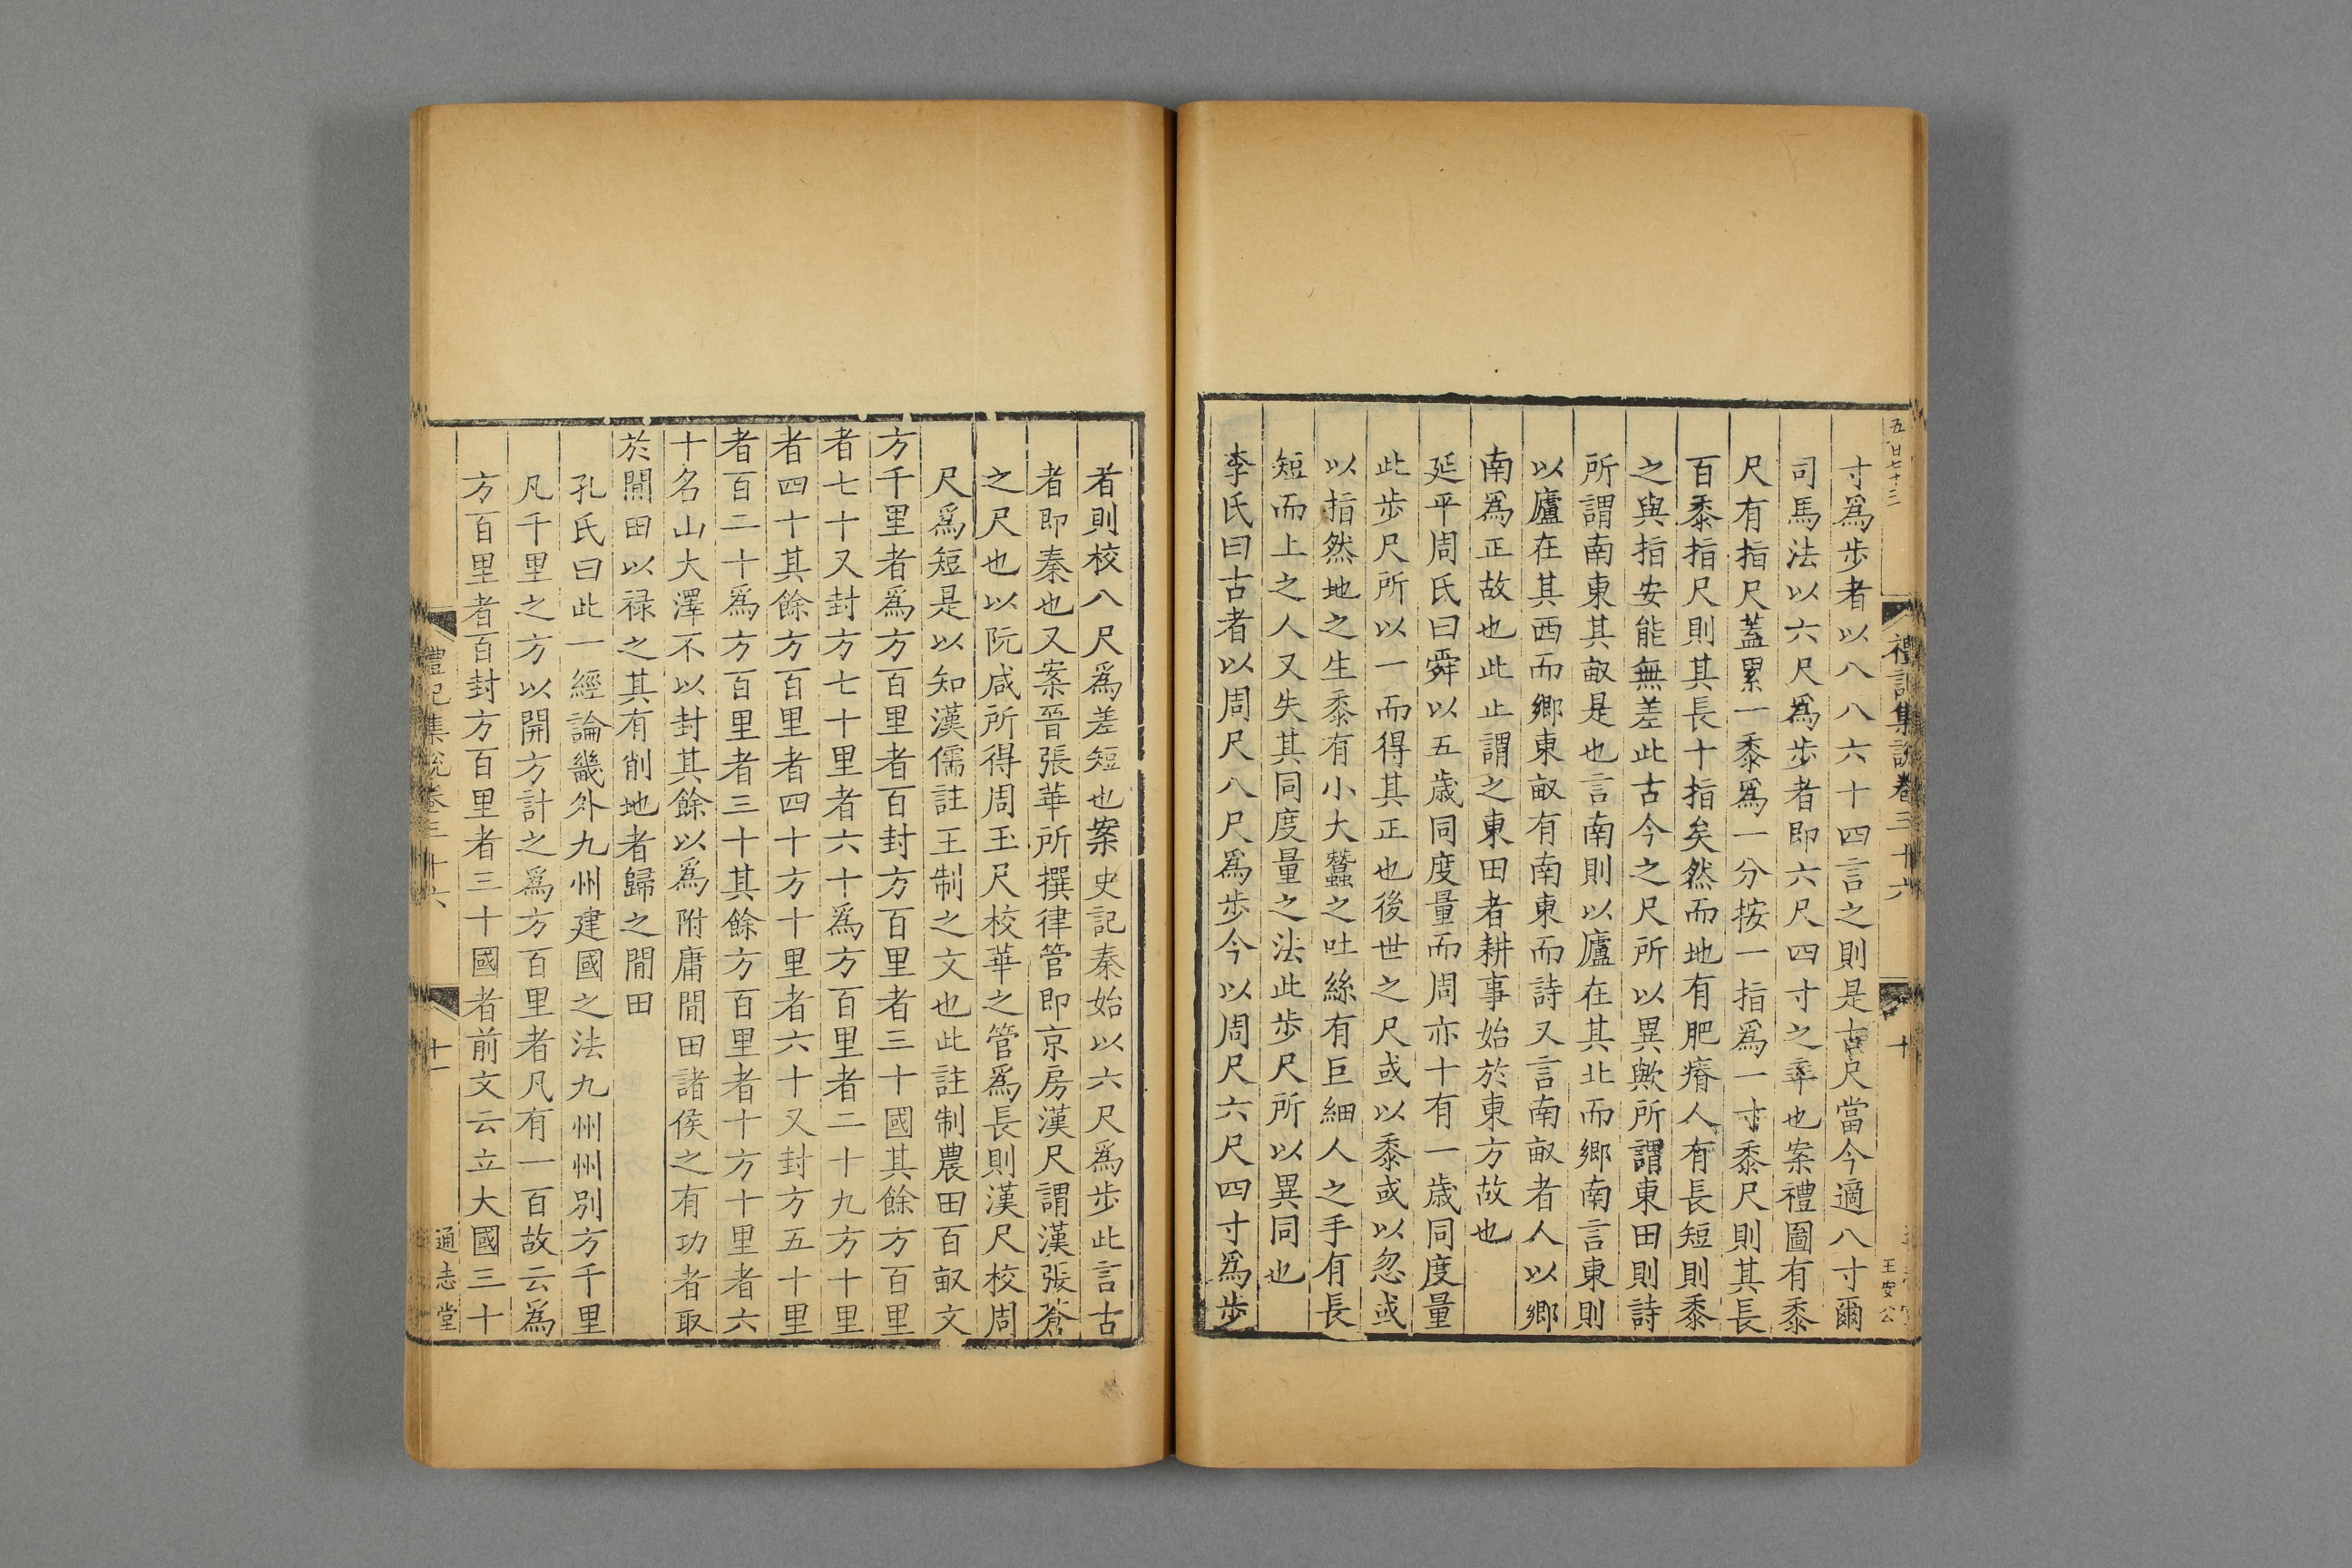 五百七十三
禮記集說卷三十六
十
王安公
寸爲步者以八八六十四言之則是古尺當今適八寸爾
司馬法以六尺爲步者即六尺四寸之率也案禮圖有黍
尺有指尺蓋累一黍爲一分按一指爲一寸黍尺則其長
百黍指尺則其長十指矣然而地有肥瘠人有長短則黍
之與指安能無差此古今之尺所以異歟所謂東田則詩
所謂南東其畝是也言南則以廬在其北而鄉南言東則
以廬在其西而鄉東畝有南東而詩又言南畝者人以鄉
南爲正故也此止謂之東田者耕事始於東方故也
延平周氏曰舜以五歲同度量而周亦十有一歲同度量
此步尺所以一而得其正也後世之尺或以黍或以忽或
以指然地之生黍有小大蠶之吐絲有巨細人之手有長
短而上之人又失其同度量之法此步尺所以異同也
李氏曰古者以周尺八尺爲步今以周尺六尺四寸爲步
者則校八尺爲差短也案史記秦始以六尺爲步此言古
者即秦也又案晉張華所撰律管即京房漢尺謂漢張蒼
之尺也以阮咸所得周玉尺校華之管爲長則漢尺校周
尺爲短是以知漢儒註王制之文也此註制農田百畝文
方千里者爲方百里者百封方百里者三十國其餘方百里
者七十又封方七十里者六十爲方百里者二十九方十里
者四十其餘方百里者四十方十里者六十又封方五十里
者百二十爲方百里者三十其餘方百里者十方十里者六
十名山大澤不以封其餘以爲附庸閒田諸侯之有功者取
於閒田以祿之其有削地者歸之閒田
孔氏曰此一經論畿外九州建國之法九州州別方千里
凡千里之方以開方計之爲方百里者凡有一百故云爲
方百里者百封方百里者三十國者前文云立大國三十
禮記集說卷三十六
十一
通志堂